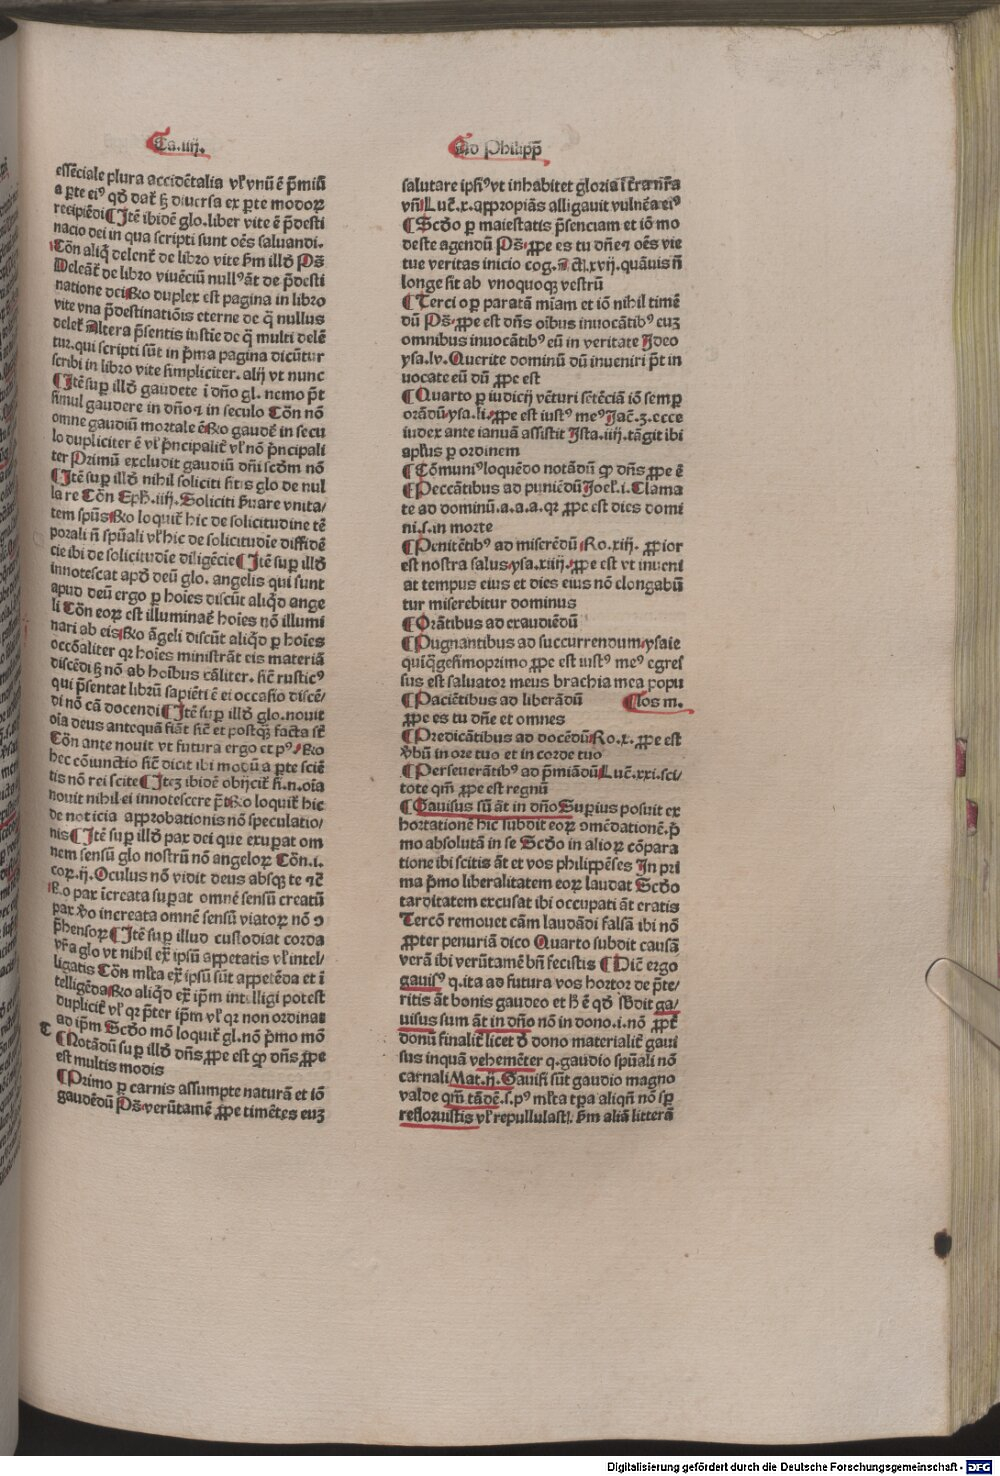 Ca.iiij.
essẽciale plura accidẽtalia vł vnũ ẽ p̃miũ
a ꝑte eiꝰ qđ daẗ ꝫ diuersa ex ꝑte modoꝝ
recipiẽdi ¶ Itẽ ibidẽ glo. liber vite ẽ p̃desti
nacio dei in qua scripti sunt oẽs saluandi.
Cõñ aliq̃ delenẗ de libro vite p̃m illđ Ps̃
Deleãẗ de libro viuẽciũ nullꝰ ãt de p̃desti
natione dei Ro duplex est pagina in libro
vite vna p̃destinatiõis eterne de q̃ nullus
deleẗ Altera p̃sentis iustie de q̃ multi delẽ
tur. qui scripti sũt in p̃ma pagina dicũtur
scribi in libro vite simpliciter. alij vt nunc
¶ Itẽ suꝑ illđ gaudete ĩ dño gl. nemo p̃t
simul gaudere in dño ⁊ in seculo Cõñ nõ
omne gaudiũ mortale ẽ Ro gaudẽ in secu
lo dupliciter ẽ vł p̃ncipaliẗ vł nõ p̃ncipali
ter Primũ excludit gaudiũ dñi scđm nõ
¶ Itẽ suꝑ illđ nihil soliciti sitis glo de nul
la re Cõñ Eph̃. iiij. Soliciti ẜuare vnita/
tem spũs Ro loquiẗ hic de solicitudine tẽ
porali ñ spũali vł hic de solicitudie diffidẽ
cie ibi de solicitudie diligẽcie ¶ Itẽ suꝑ illđ
innotescat apđ deũ glo. angelis qui sunt
apud deũ ergo ꝑ hoies discũt aliqđ ange
li Cõñ eoꝝ est illuminaẽ hoies nõ illumi
nari ab eis Ro ãgeli discũt aliqđ ꝑ hoies
occõaliter qꝛ hoies ministrãt eis materiã
discẽdi ꝫ nõ ab hoibus cãliter. sic̃ rusticꝰ
qui p̃sentat librũ sapiẽti ẽ ei occasio discẽ/
di nõ cã docendi ¶ Itẽ suꝑ illđ glo. nouit
oĩa deus antequã fiãt sic̃ et postqꝫ facta sẗ
Cõñ ante nouit vt futura ergo et pꝰ Ro
hec cõiunctio sic̃ dicit ibi modũ a ꝑte sciẽ
tis nõ rei scite ¶ Iteꝫ ibidẽ obijciẗ si. n. oĩa
nouit nihil ei innotescere p̃t Ro loquiẗ hic
de noticia approbationis nõ speculatio/
nis ¶ Itẽ suꝑ illđ pax dei que exuꝑat om
nem sensũ glo nostrũ nõ angeloꝝ Cõñ. i.
coꝝ. ij. Oculus nõ vidit deus absqꝫ te ⁊c̃
Ro pax ĩcreata suꝑat omnẽ sensũ creatũ
pax v̾o increata omnẽ sensũ viatoꝝ nõ ꝯ
p̃hensoꝝ ¶ Itẽ suꝑ illud custodiat corda
vr̃a glo vt nihil ex̃ ipsũ appetatis vł intel/
ligatis Cõñ mľta ex̃ ipsũ sũt appetẽda et ĩ
telligẽda Ro aliqđ ex̃ ipm intelligi potest
dupliciẗ vł qꝛ p̃ter ipm vł qꝛ non ordinat
ad ipm Scđo mõ loquiẗ gl. nõ p̃mo mõ
¶ Notãdũ suꝑ illđ dñs ꝓpe est qꝙ dñs ꝓpe
est multis modis
¶ Primo ꝑ carnis assumpte naturã et iõ
gaudẽdũ Ps̃ verũtamẽ ꝓpe timẽtes euꝫ
Ad Philipp̃
salutare ipsiꝰ vt inhabitet gloria ĩ ẗra nr̃a
vñ Luc̃. x. appropiãs alligauit vulnẽa eiꝰ
¶ Scđo ꝑ maiestatis p̃senciam et iõ mo
deste agendũ Ps̃. ꝓpe es tu dñe ⁊ oẽs vie
tue veritas inicio cog. Act̃. xvij. quãuis ñ
longe sit ab vnoquoqꝫ vestrũ
¶ Tercio ꝑ paratã miam et iõ nihil timẽ
dũ Ps̃. ꝓpe est dñs oĩbus inuocãtibꝰ euꝫ
omnibus inuocãtibꝰ eũ in veritate Ideo
ysa. lv. Querite dominũ dũ inueniri p̃t in
uocate eũ dũ ꝓpe est
¶ Quarto ꝑ iudicij vẽturi sẽtẽciã iõ semꝑ
orãdũ ysa. li. ꝓpe est iustꝰ meꝰ Jac̃. ʒ. ecce
iudex ante ianuã assistit Ista. iiij. tãgit ibi
apłus ꝑ ordinem
¶ Cõmuniꝰ loquẽdo notãdũ qꝙ dñs ꝓpe ẽ
¶ Peccãtibus ad puniẽdũ Joel. i. Clama
te ad dominũ. a. a. a. qꝛ ꝓpe est dies domi
ni. s. in morte
¶ Penitẽtibꝰ ad miserẽdũ Ro. xiij. ꝓpior
est nostra salus ysa. xiiij. ꝓpe est vt inueni
at tempus eius et dies eius nõ elongabũ
tur miserebitur dominus
¶ Orãtibus ad exaudiẽdũ
¶ Pugnantibus ad succurrendum ysaie
quiq̃gesimoprimo ꝓpe est iustꝰ meꝰ egres
sus est saluator meus brachia mea popu
¶ Paciẽtibus ad liberãdũ ¶ los m.
ꝓpe es tu dñe et omnes
¶ Predicãtibus ad docẽdũ Ro. x. ꝓpe est
v̾bũ in ore tuo et in corde tuo
¶ Perseuerãtibꝰ ad p̃miãdũ Luc̃. xxi. sci/
tote qm̃ ꝓpe est regnũ
¶ Gauisus sũ ãt in dño Suꝑius posuit ex
hortationẽ hic subdit eoꝝ ꝯmẽdationẽ. p̃
mo absolutã in se Scđo in alioꝝ cõpara
tione ibi scitis ãt et vos philippẽses In pri
ma p̃mo liberalitatem eoꝝ laudat Scđo
tarditatem excusat ibi occupati ãt eratis
Tercõ remouet cãm laudãdi falsã ibi nõ
ꝓpter penuriã dico Quarto subdit causã
verã ibi verũtamẽ bñ fecistis ¶ Dic̃ ergo
gauisꝰ q. ita ad futura vos hortor de p̃te/
ritis ãt bonis gaudeo et h̃ ẽ qđ s̾bdit ga/
uisus sum ãt in dño nõ in dono. i. nõ ꝓpẗ
donũ finaliẗ licet đ dono materialiẗ gaui
sus inquã vehemẽter q. gaudio spũali nõ
carnali Mat. ij. Gauisi sũt gaudio magno
valde qm̃ tãdẽ. s. pꝰ mľta tꝑa aliqñ nõ sꝑ
refloruistis vł repullulastl. p̃m aliã litterã
Digitalisierung gefördert durch die Deutsche Forschungsgemeinschaft - DFG